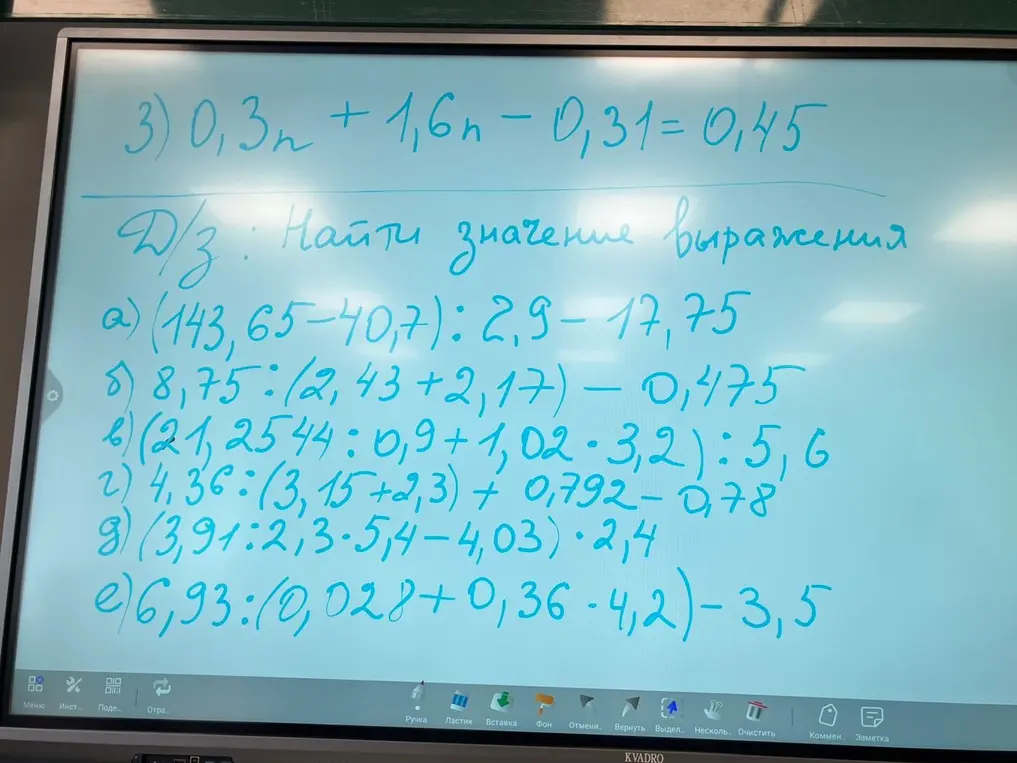 3) 0,3n + 1,6n - 0,31 = 0,45
Д/з: Найти значение выражения
а) (143,65-40,7):2,9-17,75
б) 8,75:(2,43+2,17) - 0,475
в) (21,2544:0,9+1,02·3,2):5,6
г) 4,36:(3,15+2,3) + 0,792-0,78
д) (3,91:2,3·5,4-4,03)·2,4
е) 6,93:(0,028+0,36·4,2)-3,5
Меню Инст.. Поде.. Отра.. Ручка Ластик Вставка Фон Отмени.. Вернуть Выдел.. Несколь.. Очистить Коммен.. Заметка
KVADRO